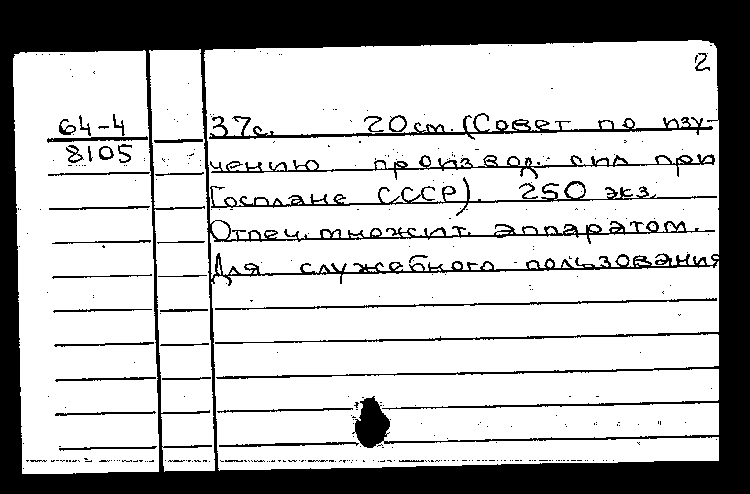 2
64-4 37с. 20 см. (Совет по изу-
8105 чению производ. сил при
Госплане СССР). 250 экз.
Отпеч. множит. аппаратом.
Для служебного пользования